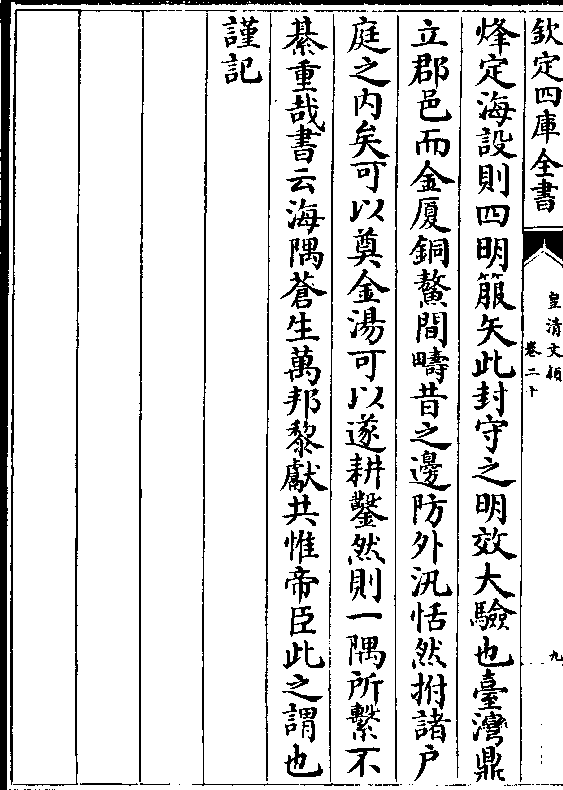 欽定四庫全書
皇清文穎
卷二十
九
烽定海設則四明箙矢此封守之明效大驗也臺灣鼎
立郡邑而金厦銅鰲間疇昔之邊防外汛恬然拊諸户
庭之内矣可以奠金湯可以遂耕鑿然則一隅所繫不
綦重哉書云海隅蒼生萬邦黎獻共惟帝臣此之謂也
謹記